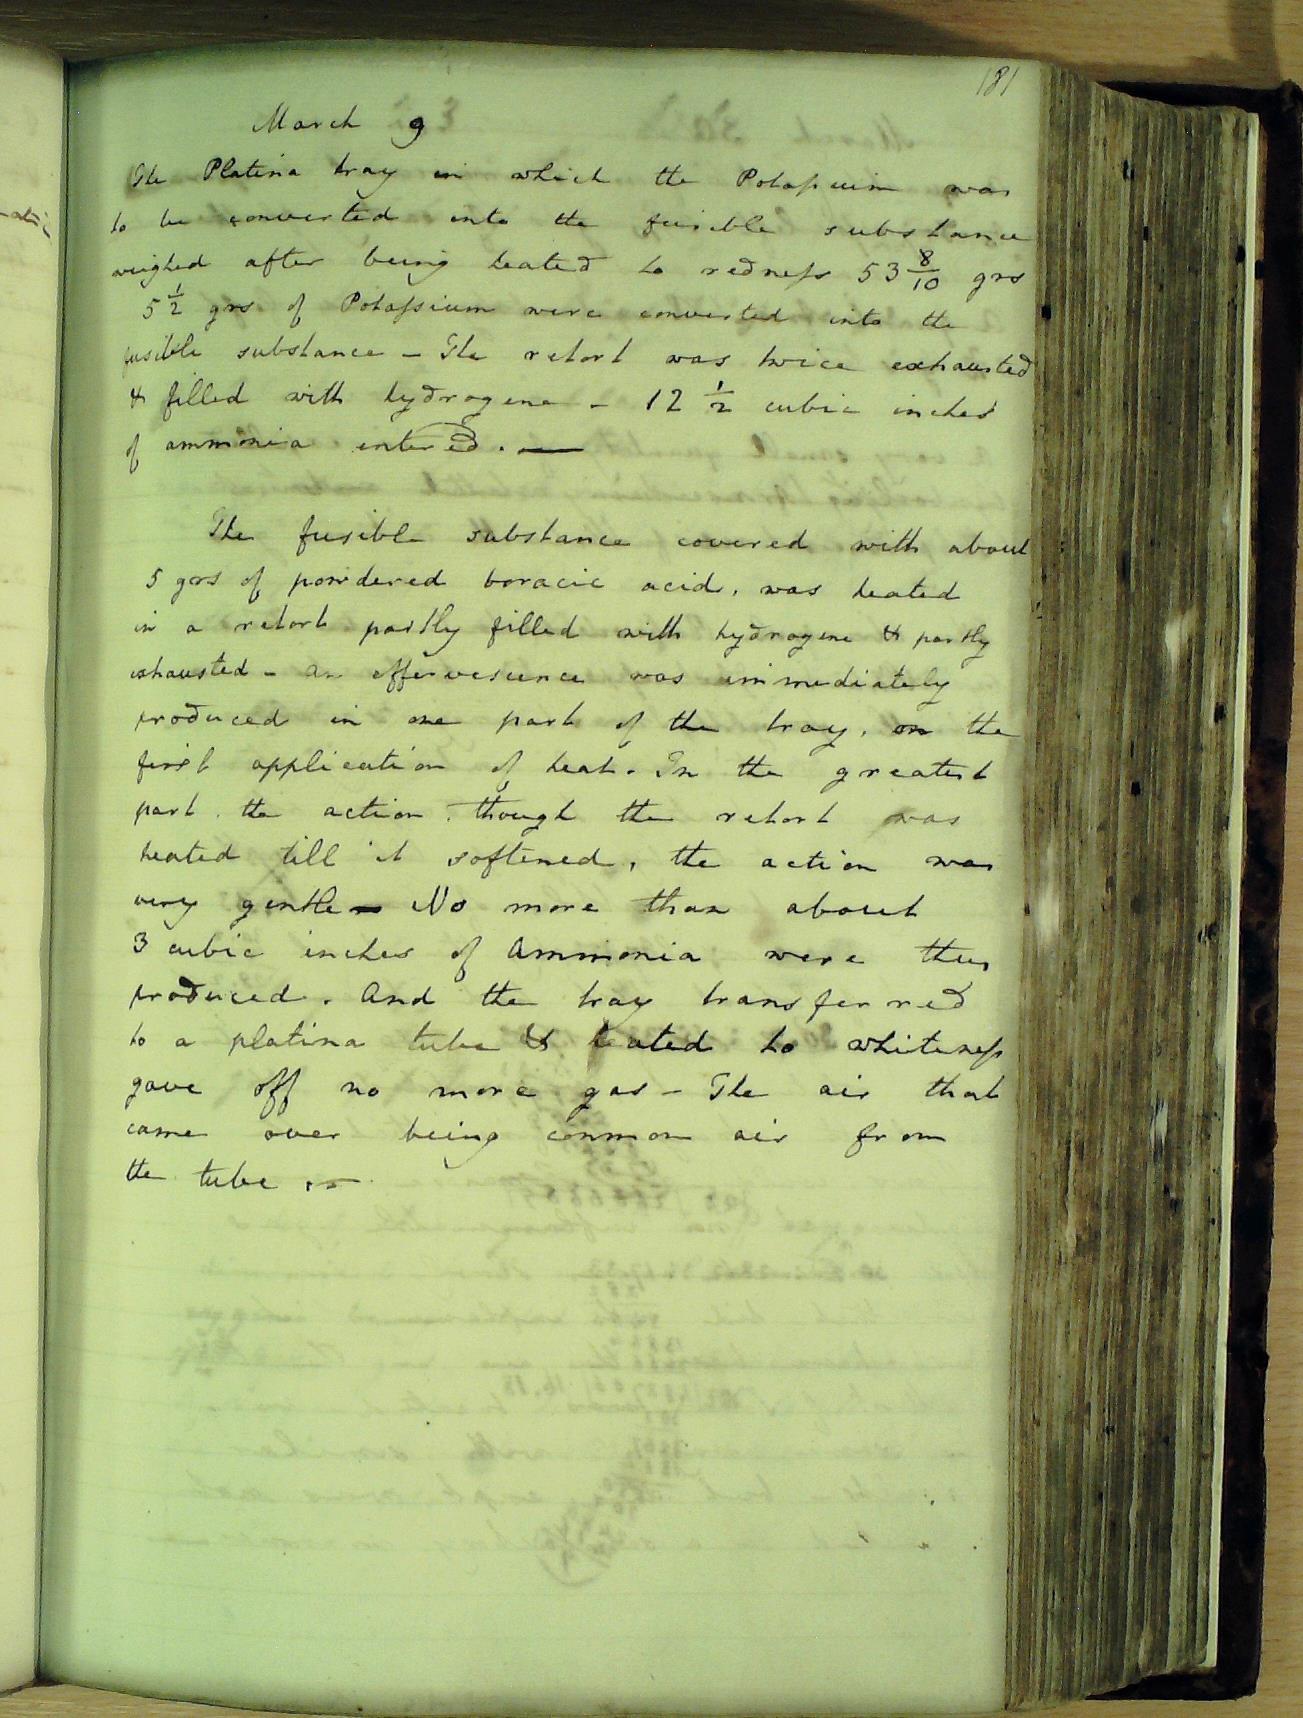 181
March 9
The Platina tray in which the Potassium was
to be converted into the fusible substance
weighed after being heated to redness 53 8/10 grs
5 1/2 grs of Potassium were converted into the
fusible substance - The retort was twice exhausted
& filled with hydrogene - 12 1/2 cubic inches
of ammonia entered. —
The fusible substance covered with about
5 grs of powdered boracic acid, was heated
in a retort partly filled with hydrogene & partly
exhausted - an effervescence was immediately
produced in one part of the tray, on the
first application of heat. In the greatest
part the action, though the retort was
heated till it softened, the action was
very gentle - No more than about
3 cubic inches of Ammonia were thus
produced. And the tray transferred
to a platina tube & heated to whiteness
gave off no more gas - The air that
came over being common air from
the tube. -